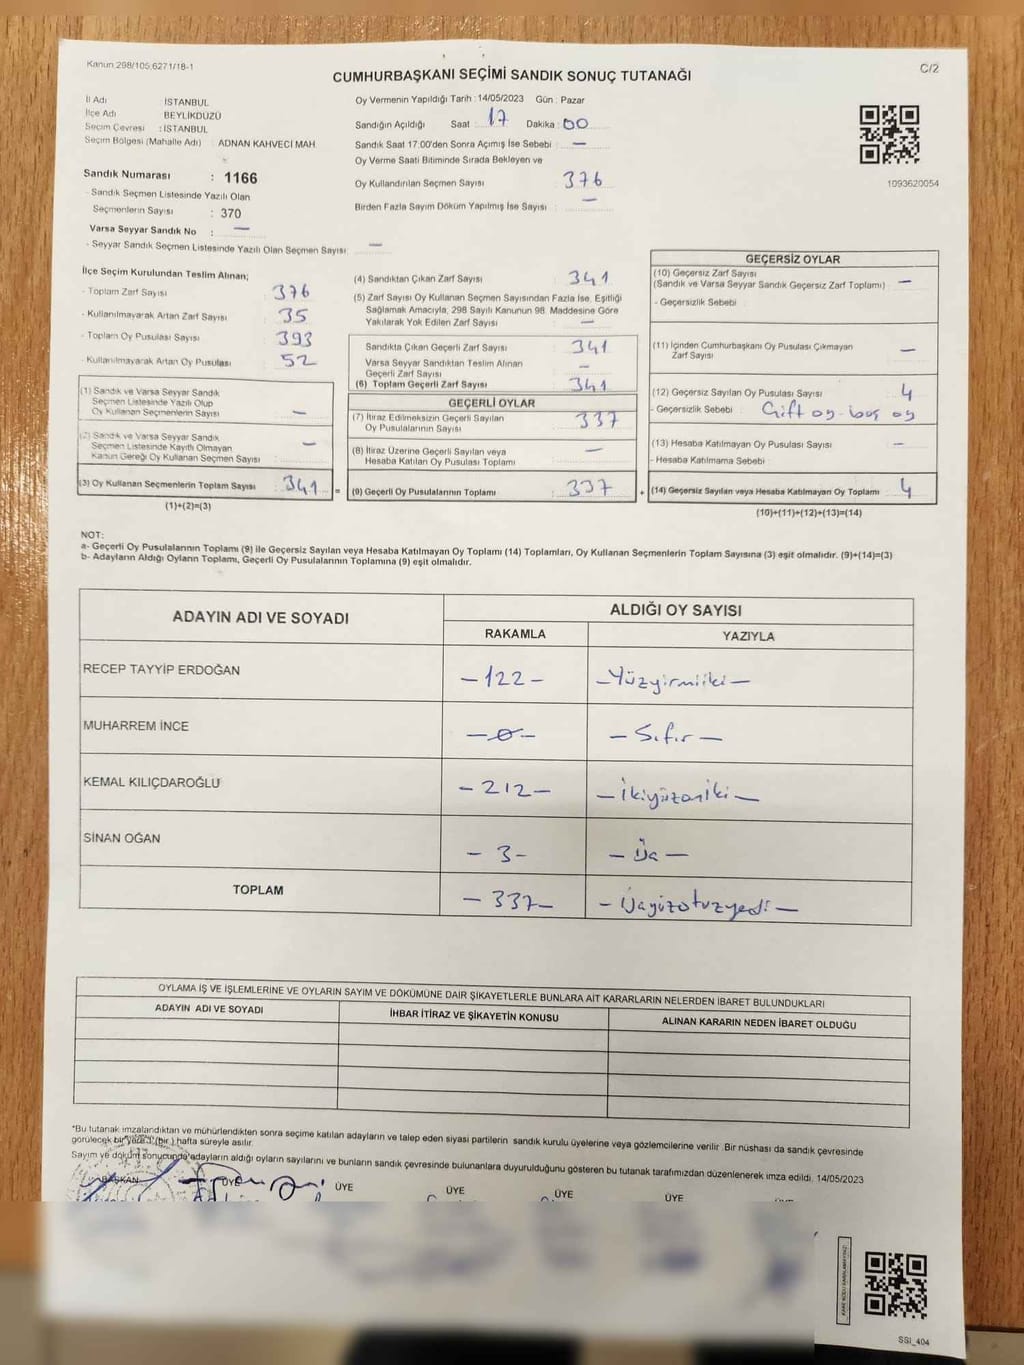 Kanun 298/105,6271/18-1
C/2
CUMHURBAŞKANI SEÇİMİ SANDIK SONUÇ TUTANAĞI
İl Adı İSTANBUL
İlçe Adı BEYLİKDÜZÜ
Seçim Çevresi : İSTANBUL
Seçim Bölgesi (Mahalle Adı) ADNAN KAHVECİ MAH.
Sandık Numarası : 1166
- Sandık Seçmen Listesinde Yazılı Olan
Seçmenlerin Sayısı : 370
Varsa Seyyar Sandık No : —
- Seyyar Sandık Seçmen Listesinde Yazılı Olan Seçmen Sayısı —
Oy Vermenin Yapıldığı Tarih : 14/05/2023 Gün : Pazar
Sandığın Açıldığı Saat : 17 Dakika : 00
Sandık Saat 17.00'den Sonra Açımış İse Sebebi : —
Oy Verme Saati Bitiminde Sırada Bekleyen ve
Oy Kullandırılan Seçmen Sayısı 376
Birden Fazla Sayım Döküm Yapılmış İse Sayısı —
1093620054
İlçe Seçim Kurulundan Teslim Alınan;
- Toplam Zarf Sayısı 376
- Kullanılmayarak Artan Zarf Sayısı 35
- Toplam Oy Pusulası Sayısı 393
- Kullanılmayarak Artan Oy Pusulası 52
(1) Sandık ve Varsa Seyyar Sandık
Seçmen Listesinde Yazılı Olup
Oy Kullanan Seçmenlerin Sayısı : —
(2) Sandık ve Varsa Seyyar Sandık
Seçmen Listesinde Kayıtlı Olmayan
Kanun Gereği Oy Kullanan Seçmen Sayısı : —
(3) Oy Kullanan Seçmenlerin Toplam Sayısı 341 =
(1)+(2)=(3)
(4) Sandıktan Çıkan Zarf Sayısı 341
(5) Zarf Sayısı Oy Kullanan Seçmen Sayısından Fazla İse, Eşitliği
Sağlamak Amacıyla, 298 Sayılı Kanunun 98. Maddesine Göre
Yakılarak Yok Edilen Zarf Sayısı —
Sandıkta Çıkan Geçerli Zarf Sayısı 341
Varsa Seyyar Sandıktan Teslim Alınan
Geçerli Zarf Sayısı —
(6) Toplam Geçerli Zarf Sayısı 341
GEÇERLİ OYLAR
(7) İtiraz Edilmeksizin Geçerli Sayılan
Oy Pusulalarının Sayısı 337
(8) İtiraz Üzerine Geçerli Sayılan veya
Hesaba Katılan Oy Pusulası Toplamı —
(9) Geçerli Oy Pusulalarının Toplamı 337 +
GEÇERSİZ OYLAR
(10) Geçersiz Zarf Sayısı
(Sandık ve Varsa Seyyar Sandık Geçersiz Zarf Toplamı) —
- Geçersizlik Sebebi
(11) İçinden Cumhurbaşkanı Oy Pusulası Çıkmayan
Zarf Sayısı —
(12) Geçersiz Sayılan Oy Pusulası Sayısı 4
- Geçersizlik Sebebi : Çift oy - boş oy
(13) Hesaba Katılmayan Oy Pusulası Sayısı —
- Hesaba Katılmama Sebebi
(14) Geçersiz Sayılan veya Hesaba Katılmayan Oy Toplamı 4
(10)+(11)+(12)+(13)=(14)
NOT:
a- Geçerli Oy Pusulalarının Toplamı (9) ile Geçersiz Sayılan veya Hesaba Katılmayan Oy Toplamı (14) Toplamları, Oy Kullanan Seçmenlerin Toplam Sayısına (3) eşit olmalıdır. (9)+(14)=(3)
b- Adayların Aldığı Oyların Toplamı, Geçerli Oy Pusulalarının Toplamına (9) eşit olmalıdır.
ADAYIN ADI VE SOYADI ALDIĞI OY SAYISI
RAKAMLA YAZIYLA
RECEP TAYYİP ERDOĞAN —122— —Yüzyirmiiki—
MUHARREM İNCE —0— —Sıfır—
KEMAL KILIÇDAROĞLU —212— —İkiyüzoniki—
SİNAN OĞAN —3— —Üç—
TOPLAM —337— —Üçyüzotuzyedi—
OYLAMA İŞ VE İŞLEMLERİNE VE OYLARIN SAYIM VE DÖKÜMÜNE DAİR ŞİKAYETLERLE BUNLARA AİT KARARLARIN NELERDEN İBARET BULUNDUKLARI
ADAYIN ADI VE SOYADI İHBAR İTİRAZ VE ŞİKAYETİN KONUSU ALINAN KARARIN NEDEN İBARET OLDUĞU
*Bu tutanak imzalandıktan ve mühürlendikten sonra seçime katılan adayların ve talep eden siyasi partilerin sandık kurulu üyelerine veya gözlemcilerine verilir. Bir nüshası da sandık çevresinde
görülecek bir yere 1 (bir) hafta süreyle asılır.
Sayım ve döküm sonucunda adayların aldığı oyların sayılarını ve bunların sandık çevresinde bulunanlara duyurulduğunu gösteren bu tutanak tarafımızdan düzenlenerek imza edildi. 14/05/2023
BAŞKAN ÜYE ÜYE ÜYE ÜYE ÜYE
SSI_404